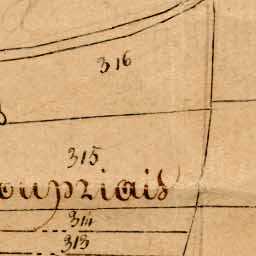 316
315
oupriais
314
313